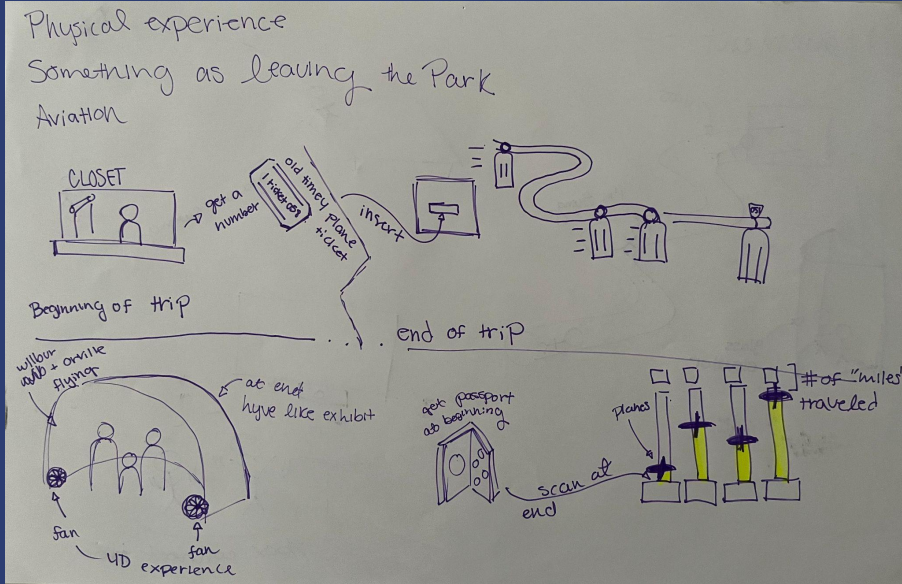 Physical experience
Something as leaving the Park
Aviation
CLOSET
get a
number
old timey plane
ticket
insert
Beginning of trip
end of trip
wilbur
+ orville
flying
at end
hyve like exhibit
fan
fan
4D experience
get passport
at beginning
scan at
end
planes
# of "miles"
traveled